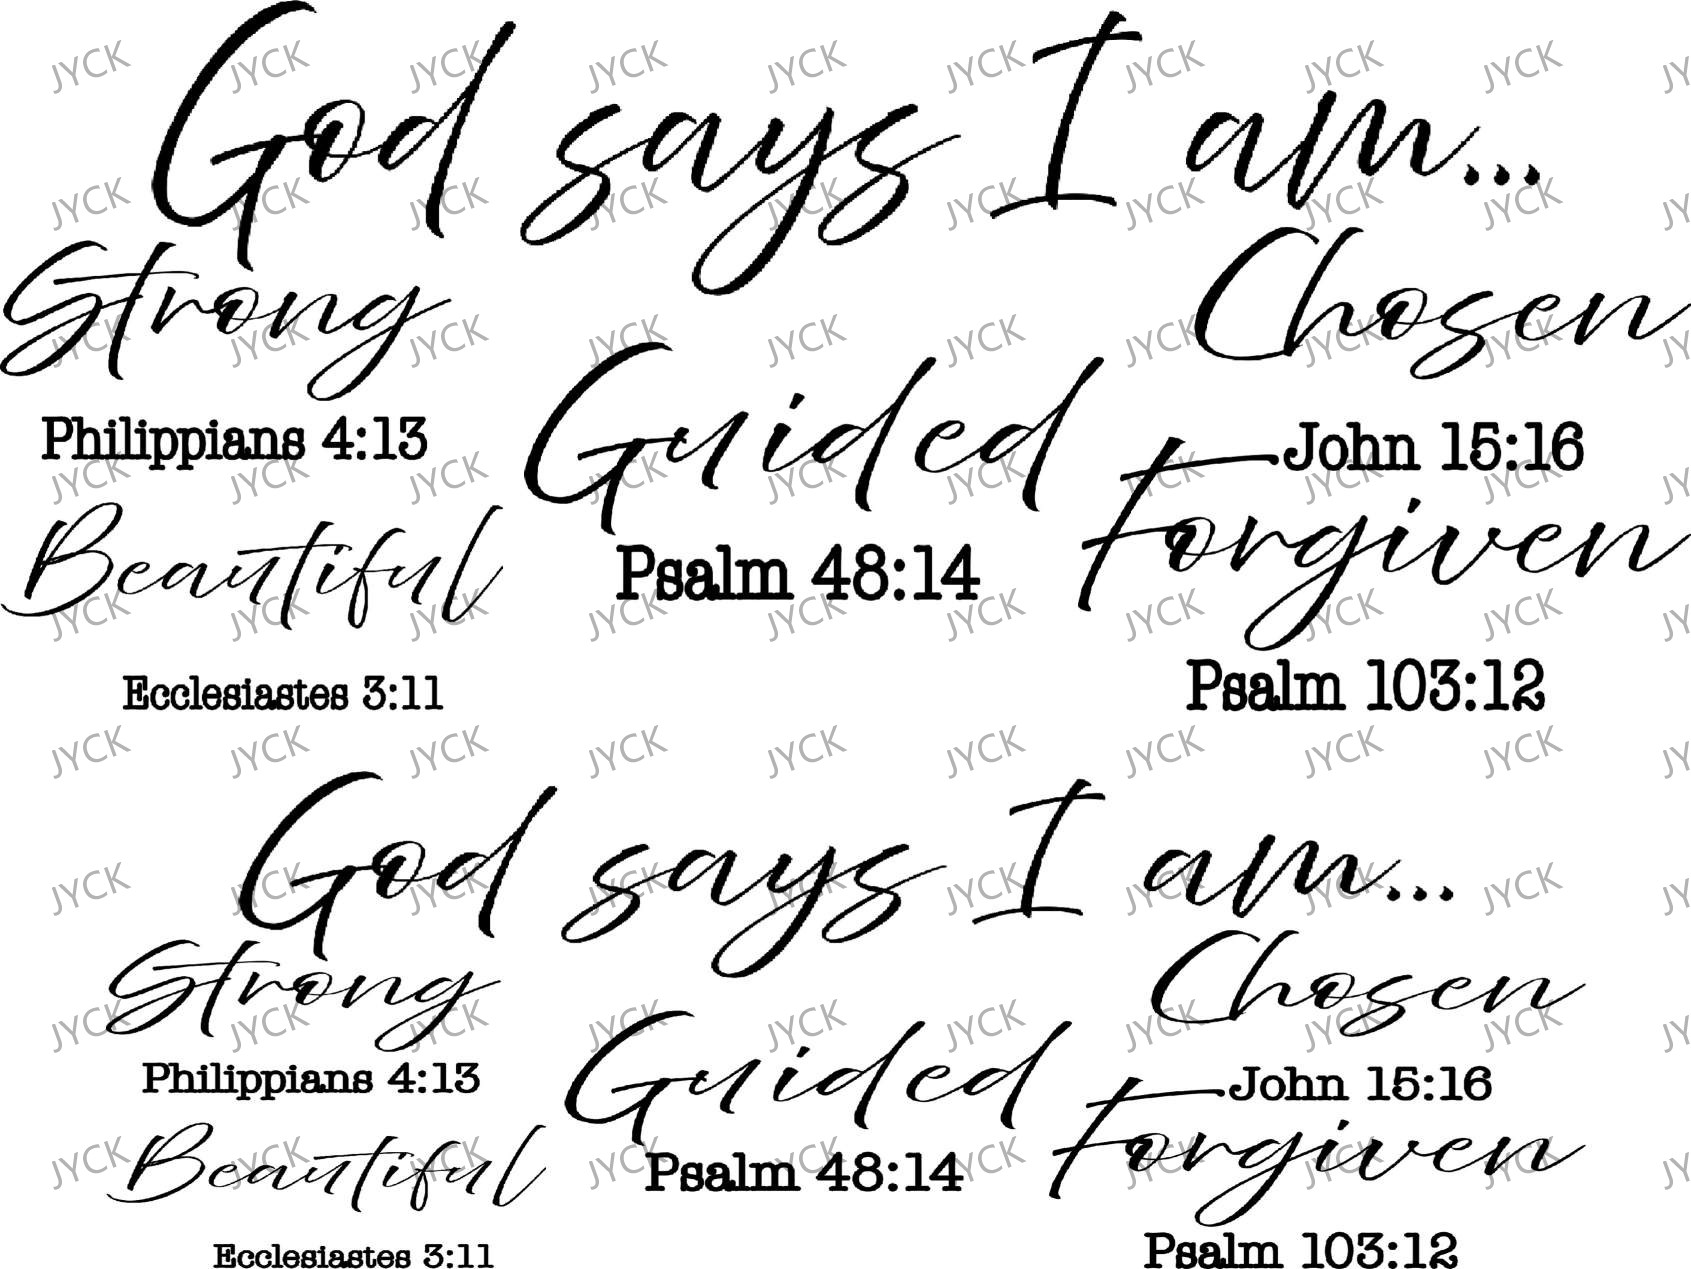 God says I am...
Strong
Chosen
Philippians 4:13
Guided
John 15:16
Beautiful
Forgiven
Psalm 48:14
Ecclesiastes 3:11
Psalm 103:12
God says I am...
Strong
Chosen
Philippians 4:13
Guided
John 15:16
Beautiful
Forgiven
Psalm 48:14
Ecclesiastes 3:11
Psalm 103:12
JYCK